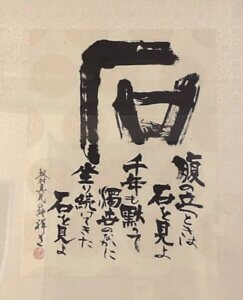 石
腹の立つときは
石を見よ
千年も黙って
濁世のなかに
坐り続けてきた
石を見よ
坂村真民